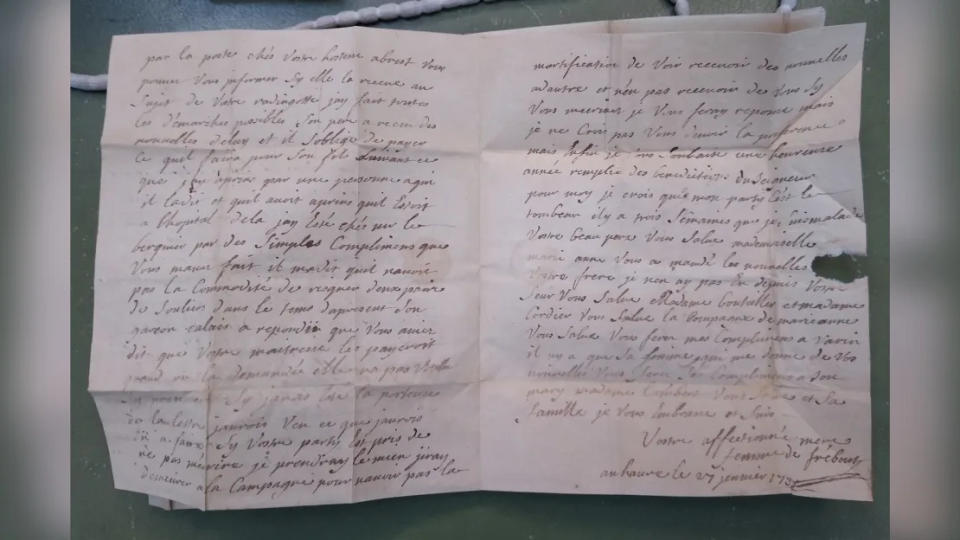 par la poste chés Votre hotesse abrest Vous
pouvez Vous informer Sy elle la receue au
Sujet de Votre redingotte jay fait toutes
les démarches posibles Son pere a receu des
nouvelles deluy et il Soblige de payer
ce quil faira pour Son fils Suivant ce
que jay apris par une personne
il ladit et quil avoit apris quil Estoit
a lhopital dela jay Esté chés mr le
berquier par des Simples Complimens que
Vous mavez fait il madit quil navoit
pas la Commodité de deux paire
de Souliers dans le tems dapresent Son
garcon calais a repondu que Vous aviez
dit que Votre maitresse les payeroit
quand on la demandée elle na pas Voulu
Sy javois Esté la porteuse
de la lettre jaurois Veu ce que jaurois
a faire Sy Votre party Est pris de
ne pas mécrire je prendray le mien jiray
demeurer a la Campagne pour navoir pas la
mortification de Voir recevoir des nouvelles
adautre et nen pas recevoir de Vous Sy
Vous mecrivez je Vous feray reponse mais
je ne Crois pas Vous devoir la preference
mais Enfin je Vous Souhaite une heureuse
année remplie des benedictions du Seigneur
pour moy je crois que mon party Est le
tombeau il y a trois Semaines que je Suis malade
Votre beau pere Vous Salue mademoiselle
marie anne Vous a mandé les nouvelles
Votre frere je nen ay pas Eu depuis Votre
Seur Vous Salue Madame bouteiller et madame
Cordier Vous Salue la Compagne de marie anne
Vous Salue Vous ferez mes Complimens a
il ny a que Sa femme qui me donne de Vos
nouvelles Vous ferez Complimens a Son
mary madame Lambert Vous Salue et Sa
famille je Vous Embrasse et Suis
Votre affectionné mere
femme de
au havre le 27 jenvier